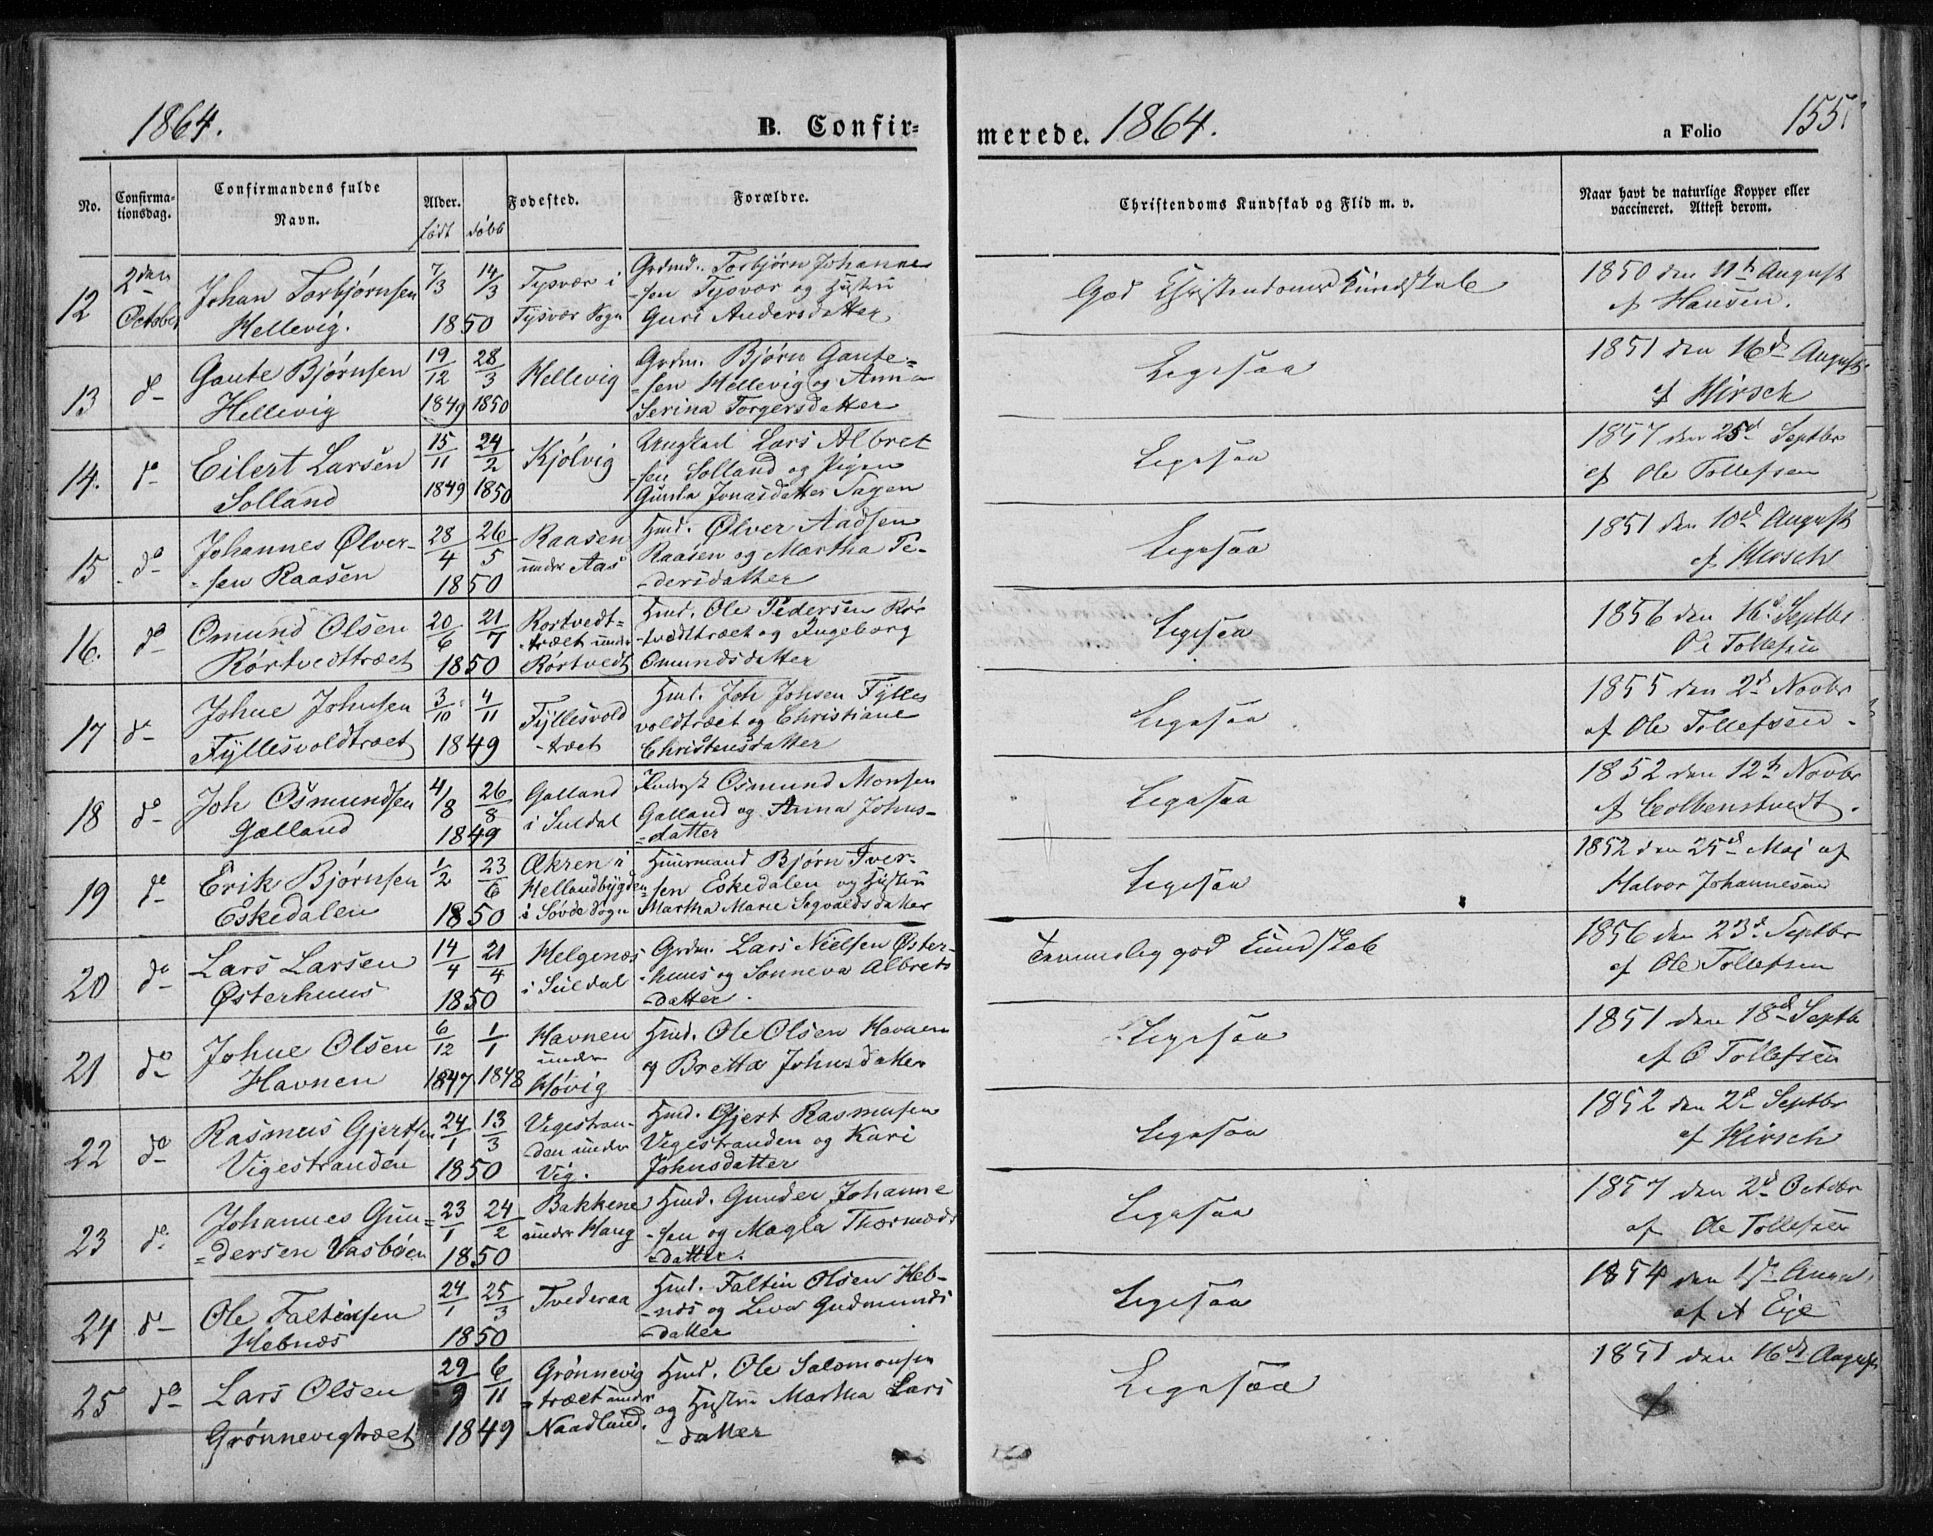 1864.
B. Confir-
merede. 1864.
a Folio 155.
No.
Confirma-
tionsdag.
Confirmandens fulde
Navn.
Alder.
født døbt
Fødested.
Forældre.
Christendoms Kundskab og Flid m. v.
Naar havt de naturlige Kopper eller
vaccineret. Attest derom.
12
2den
October
Johan Torbjørnsen
Hellevig.
7/3 14/3
1850
Tysvær i
Tysvær Sogn
Grdmd. Torbjørn Johanne
-sen Tysvær og Hustru
Guri Andersdatter
God Christendoms Kundskab
1850 den 11th August
af Hansen.
13 do
Gaute Bjørnsen
Hellevig
19/12 28/3
1849 1850
Hellevig
Grdm. Bjørn Gaute-
-sen Hellevig og Anna
Serina Torgersdatter
Ligesaa
1851 den 16d August
af Kirsch
14. do
Eilert Larsen
Solland
15/11 24/2
1849 1850
Kjølvig
Ungkarl Lars Albret
-sen Solland og Pigen
Gunla Jonasdatter
Ligesaa
1857 den 25d Septbr
af Ole Tollefsen
15. do
Johannes Ølver-
-sen Raasen
28/4 26/5
1850
Raasen
under Aas
Hmd. Ølver Aadsen
Raasen og Martha Pe-
-dersdatter
Ligesaa
1851 den 10d August
af Kirsch
16. do
Omund Olsen
Rørtvedttræet
20/6 21/7
1850
Rortvedt=
-træet under
Rørtvedt
Hmd. Ole Pedersen Rør
-tvedttræet og Ingeborg
Omundsdatter
Ligesaa
1856 den 16d Septbr
Ole Tollefsen
17 do
Johne Johnsen
Fyllesvoldtræet
3/10 4/11
1849
Fyllesvold
-træet
Hmd. Joh Johsen Fylles
voldtræet og Christiane
Christensdatter
Ligesaa
1855 den 2d Novbr
af Ole Tollefsen
18 do
Joh Osmundsen
Galland
4/8 26/8
1849
Galland
i Suldal
Osmund Monsen
Galland og Anna Johns-
-datter
Ligesaa
1852 den 12th Novbr
af Colbenstvedt.
19 do
Erik Bjørnsen
Eskedalen
1/2 23/6
1850
Økren i
Hellandbygden
i Søvde Sogn
Huusmand Bjørn Iver-
-sen Eskedalen og Hustru
Martha Marie Segvaldsdatter
Ligesaa
1852 den 25d Maj af
Halvor Johannesen
20 do
Lars Larsen
Østerhuus
14/4 21/4
1850
Helgenæs
i Suldal
Grdm. Lars Nielsen Øster-
-huus og Sønneva Albreds
-datter.
Temmelig god Kundskab
1856 den 23d Septbr
af Ole Tollefsen
21 do
Johne Olsen
Havnen
6/12 1/1
1847 1848
Havnen
under
Høvig
Hmd. Ole Olsen Havnen
og Britta Johnsdatter
Ligesaa
1851 den 18d Septb
af O Tollefsen
22 do
Rasmus Gjertsen
Vigestranden
24/1 13/3
1850
Vigestran-
den under
Vig.
Hmd. Gjert Rasmusen
Vigestranden og Kari
Johnsdatter
Ligesaa
1852 den 2d Septbr
af Kirsch
23 do
Johannes Gun=
-dersen Vasbøen
23/1 24/2
1850
Bakkene
under Haug
Hmd. Gunder Johanne
-sen og Magla Thormods
-datter.
Ligesaa
1857 den 2d Octobr
af Ole Tollefsen
24 do
Ole Faltinsen
Hebnæs
24/1 25/3
1850
Tvederaa
Hmd. Faltin Olsen Heb-
-næs og Liva Gudmunds
-datter
Ligesaa
1854 den
af A Eje
25 do
Lars Olsen
Grønnevigtræet
29/9 6/11
1849
Grønnevig
-træet under
Naadland.
Hmd. Ole Salomonsen
og Hustru Martha Lars
-datter
Ligesaa
1851 den 16d August
af